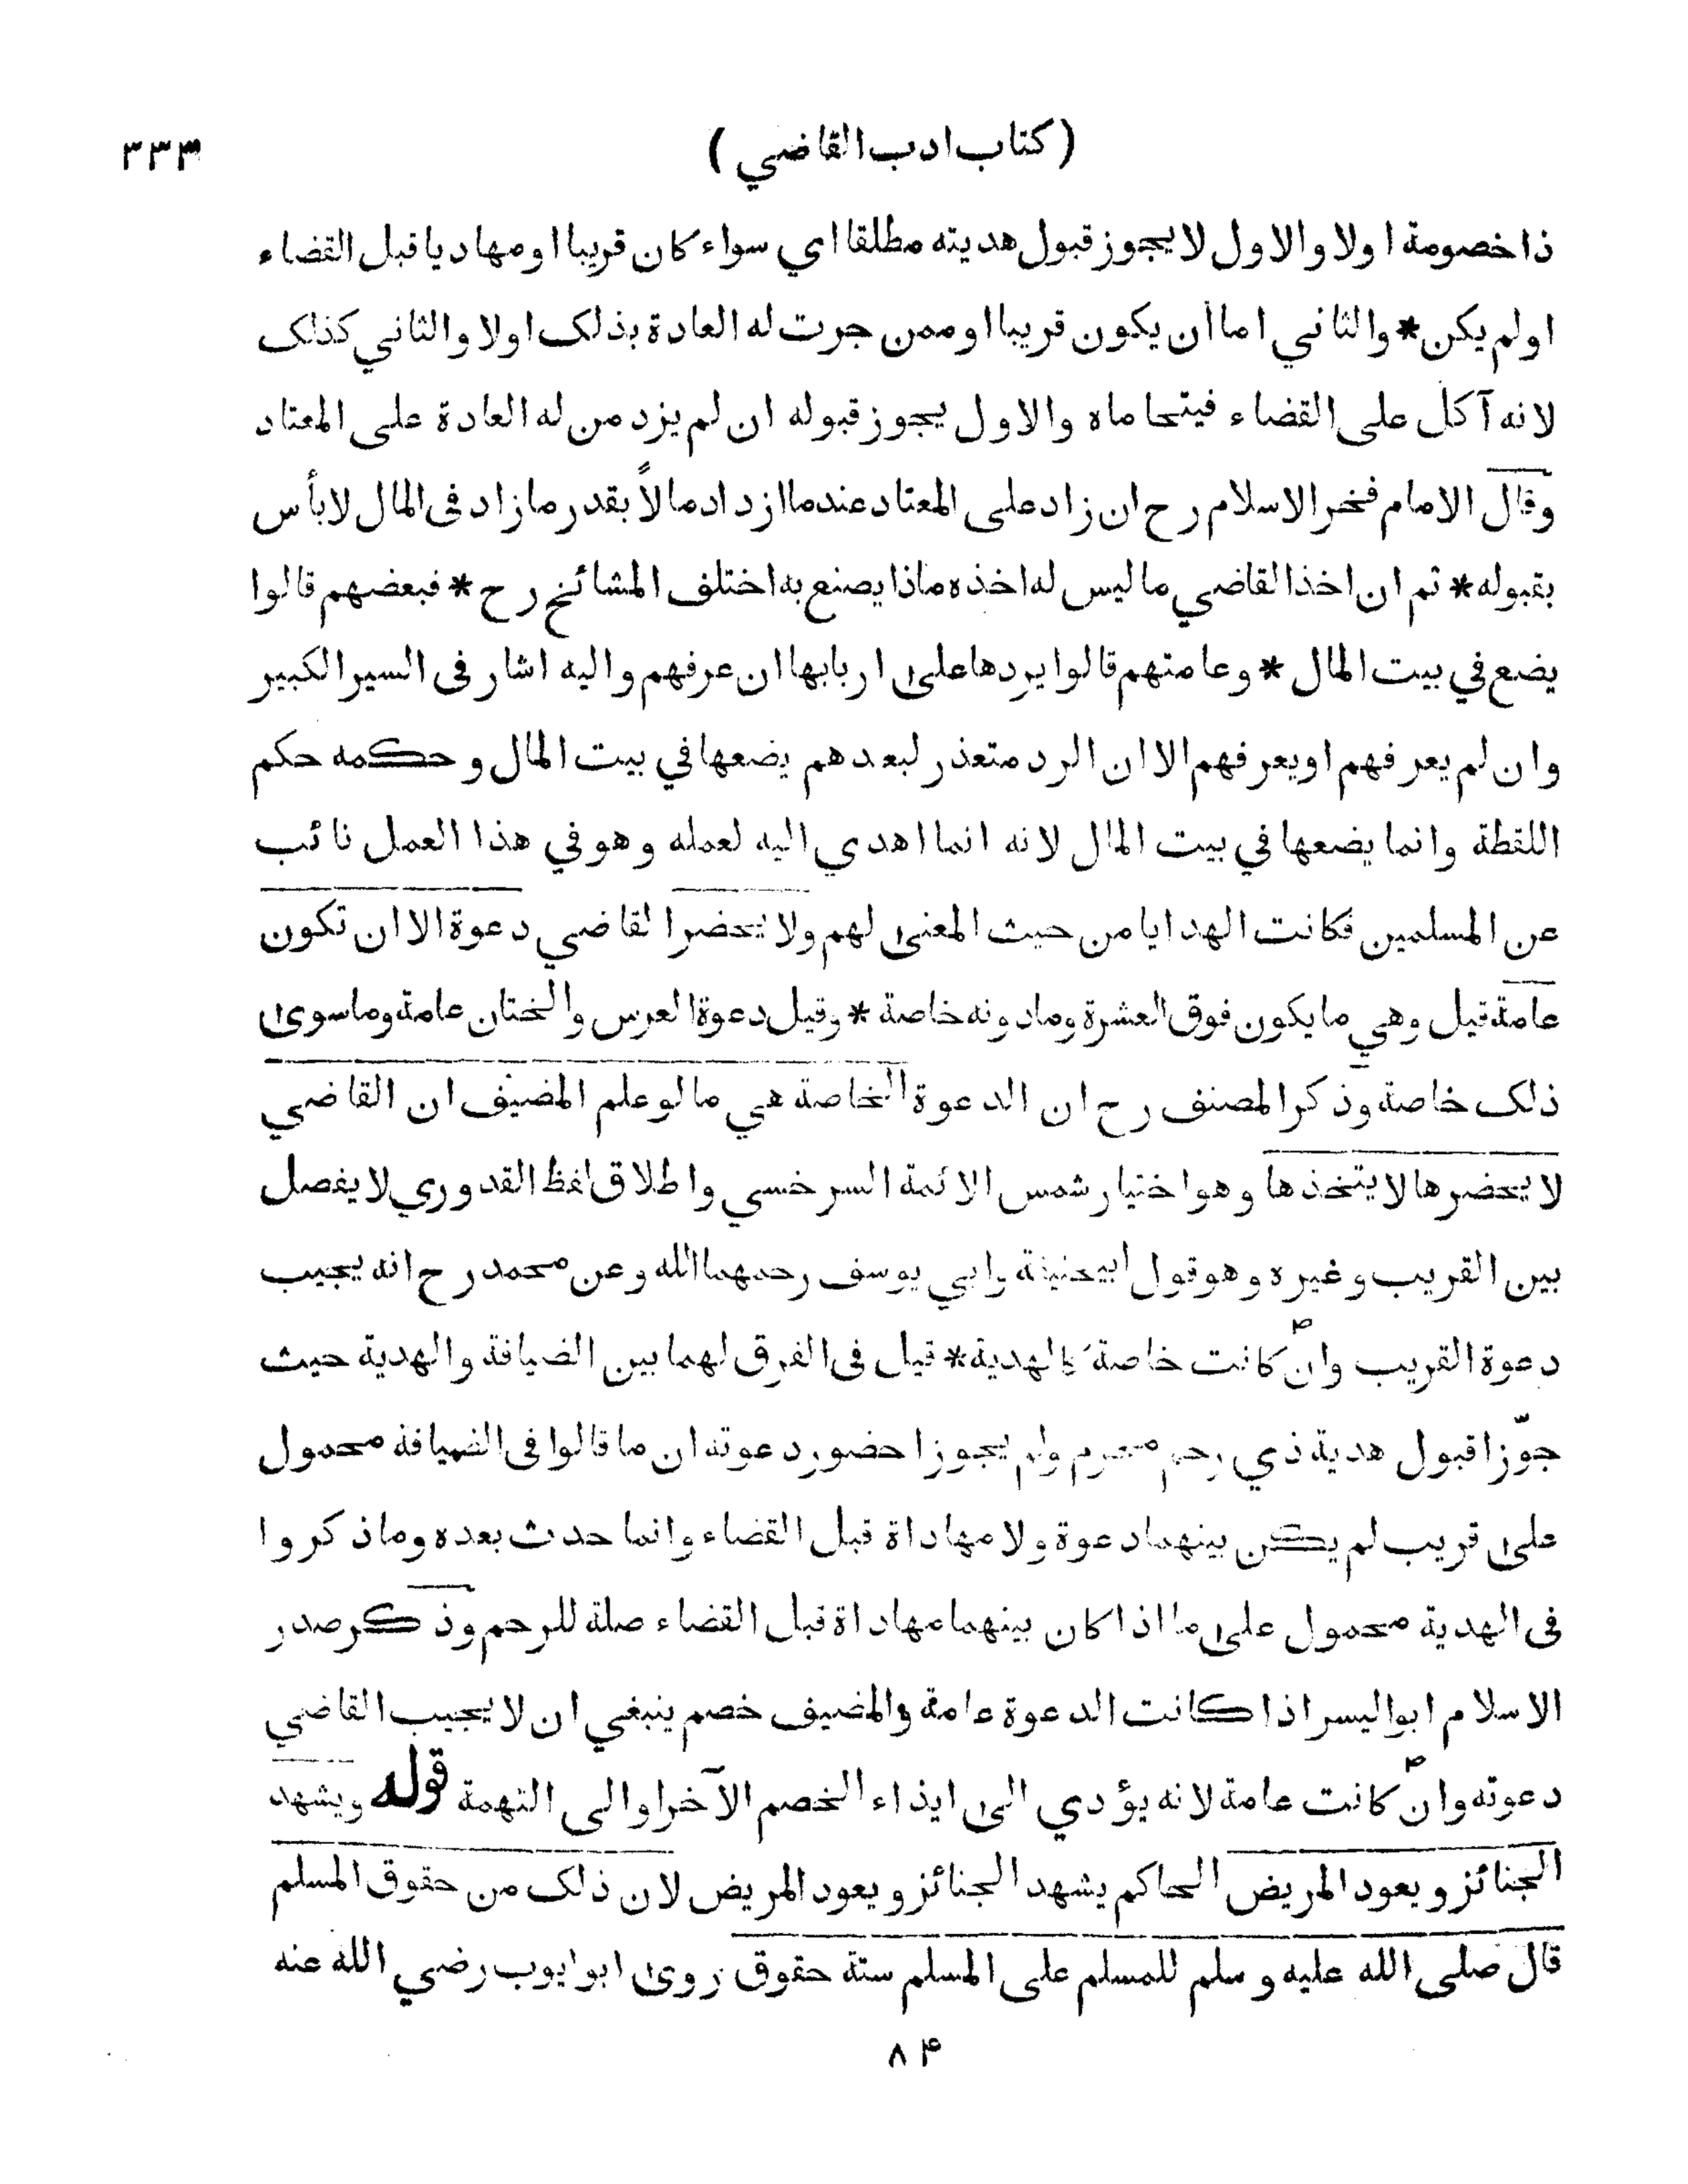 (كتاب ادب القاضي) ٣٣٣
ذا خصومة اولا والاول لا يجوز قبول هديته مطلقا اي سواء كان قريبا او مهاديا قبل القضاء
او لم يكن * والثاني اما أن يكون قريبا او ممن جرت له العادة بذلك اولا والثاني كذلك
لانه آكل على القضاء فيتحاماه والاول يجوز قبوله ان لم يزد من له العادة على المعتاد
وقال الامام فخر الاسلام رح ان زاد على المعتاد عند ما ازداد مالاً بقدر ما زاد فى المال لا بأس
بقبوله * ثم ان اخذ القاضي ما ليس له اخذه ماذا يصنع به اختلف المشائخ رح * فبعضهم قالوا
يضع في بيت المال * وعامتهم قالوا يردها على اربابها ان عرفهم واليه اشار فى السير الكبير
وان لم يعرفهم او يعرفهم الا ان الرد متعذر لبعدهم يضعها في بيت المال وحكمه حكم
اللقطة وانما يضعها في بيت المال لانه انما اهدي اليه لعمله وهو في هذا العمل نائب
عن المسلمين فكانت الهدايا من حيث المعنى لهم ولا يحضر القاضي دعوة الا ان تكون
عامة قيل وهي ما يكون فوق العشرة وما دونه خاصة * وقيل دعوة العرس والختان عامة وما سوى
ذلك خاصة وذكر المصنف رح ان الدعوة الخاصة هي ما لو علم المضيف ان القاضي
لا يحضرها لا يتخذها وهو اختيار شمس الائمة السرخسي واطلاق لفظ القدوري لا يفصل
بين القريب وغيره وهو قول ابيحنيفة وابي يوسف رحمهما الله وعن محمد رح انه يجيب
دعوة القريب وان كانت خاصة كالهدية * قيل فى الفرق لهما بين الضيافة والهدية حيث
جوّزا قبول هدية ذي رحم محرم ولم يجوزا حضور دعوته ان ما قالوا فى الضيافة محمول
على قريب لم يكن بينهما دعوة ولا مهاداة قبل القضاء وانما حدث بعده وما ذكروا
فى الهدية محمول على ما اذا كان بينهما مهاداة قبل القضاء صلة للرحم وذكر صدر
الاسلام ابو اليسر اذا كانت الدعوة عامة والمضيف خصم ينبغي ان لا يجيب القاضي
دعوته وان كانت عامة لانه يؤدي الى ايذاء الخصم الآخر او الى التهمة قوله ويشهد
الجنائز ويعود المريض الحاكم يشهد الجنائز ويعود المريض لان ذلك من حقوق المسلم
قال صلى الله عليه وسلم للمسلم على المسلم ستة حقوق روى ابو ايوب رضي الله عنه
٨۴